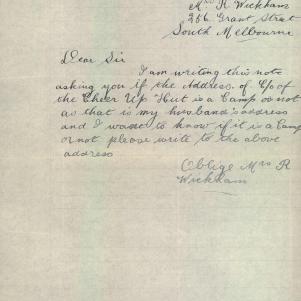 Mrs R Wickham
266 Grant Street
South Melbourne
Dear Sir
I am writing this note
asking you if the Address of C/o of
the Cheer Up Hut is a Camp or not
as that is my husband's address
and I want to know if it is a Camp
or not please write to the above
address
Oblige Mrs R
Wickham